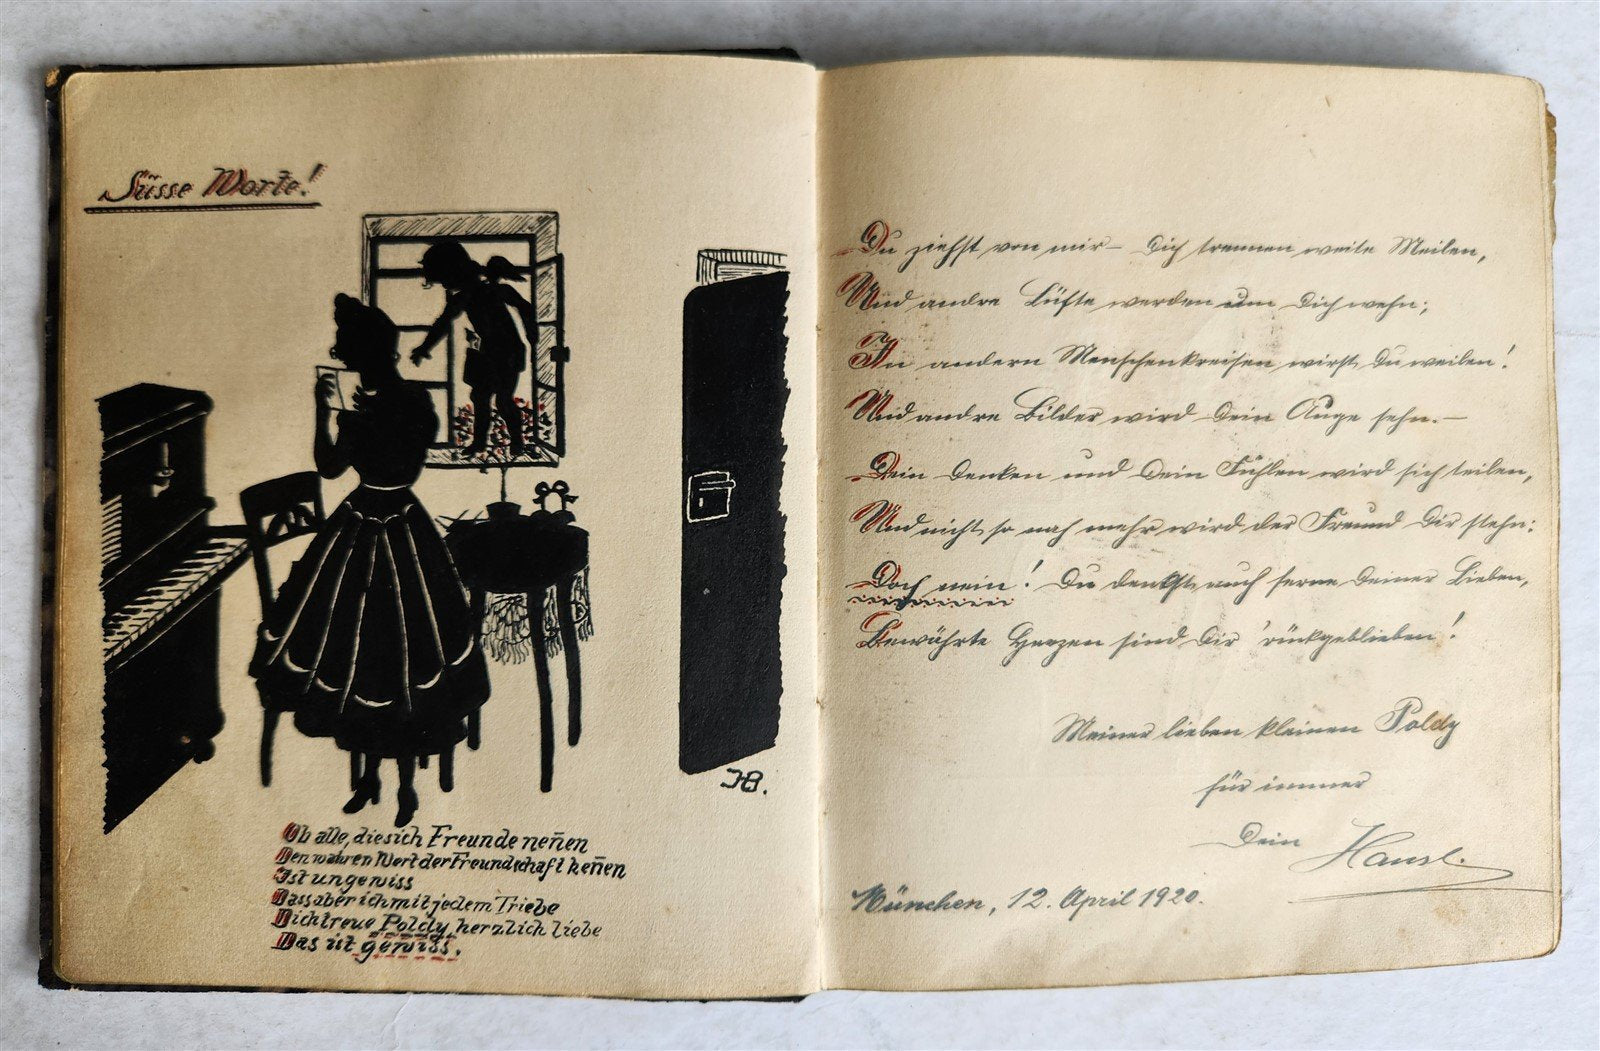 Süsse Worte!
JB.
Ob alle, die sich Freunde nen̄en
Den wahren Wert der Freundschaft ken̄en
Ist ungewiss
Dass aber ich mit jedem Triebe
Dich treue Poldy herzlich liebe
Das ist gewiss.
Du ziehst von mir – Dich trennen weite Meilen,
Und andre Lüfte werden um Dich wehn;
In andern Menschenkreisen wirst Du weilen!
Und andre Bilder wird Dein Auge sehn. –
Dein Denken und Dein Fühlen wird sich teilen,
Und nicht so nah mehr wird der Freund Dir stehn:
Doch nein! Du denkst auch ferne Deiner Lieben,
Bewährte Herzen sind Dir 'rückgeblieben!
Meiner lieben kleinen Poldy
für immer
Dein Hansl.
München, 12. April 1920.